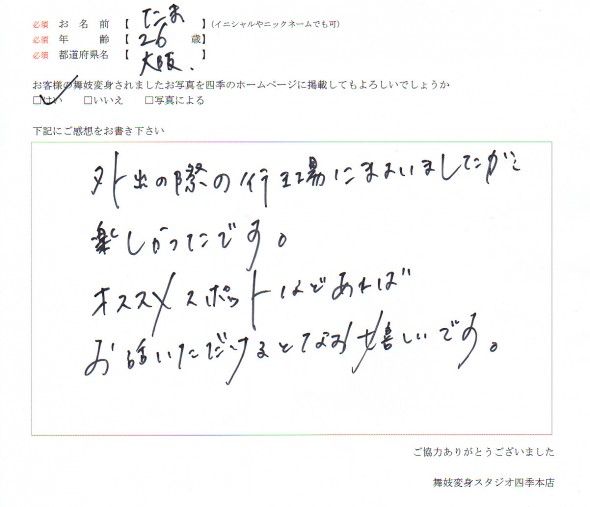 必須 お名前【 たま 】(イニシャルやニックネームでも可)
必須 年齢【 26 歳】
必須 都道府県名【 大阪. 】
お客様の舞妓変身されましたお写真を四季のホームページに掲載してもよろしいでしょうか
□はい □いいえ □写真による
下記にご感想をお書き下さい
外出の際の行き場にまよいましたがこ
楽しかったです。
オススメスポットなどあれば
お話いただけるとなお嬉しいです。
ご協力ありがとうございました
舞妓変身スタジオ四季本店